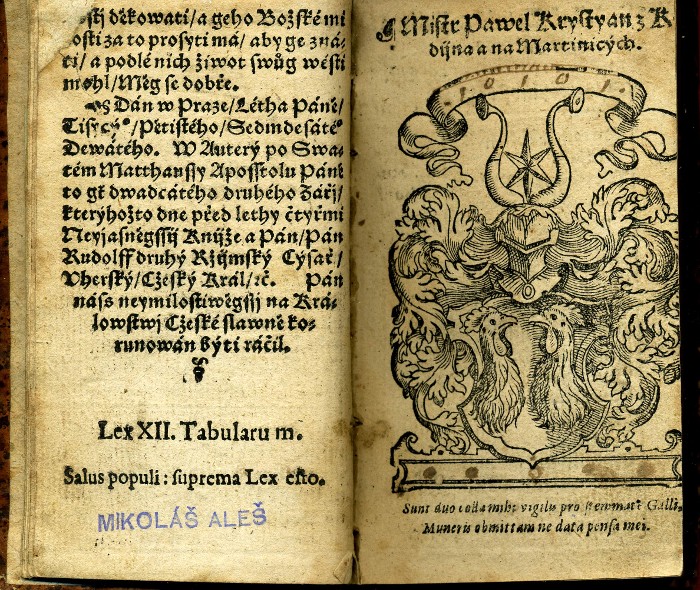 osti děkowati/a geho Božské mi
losti za to prosyti má/ aby ge zná-
ti/ a podlé nich žiwot swůg wésti
mohl/ Měg se dobře.
Dán w Praze/ Létha Páně/
Tisýcý°/Pětistého/Sedmdesáté°
Dewátého. W Auterý po Swa-
tém Matthaussy Aposstolu Páně
to gt dwadcátého druhého Zářj/
kterýhožto dne před lethy čtyřmi
Neyjasněgssij Knijže a Pán/ Pán
Rudolff druhý Rzijmský Cýsař/
Vherský/ Cžeský Král/ ꝛč. Pán
náss neymilostiwěgsij na Krá-
lowstwj Cžeské slawně ko-
runowán býti ráčil.
Lex XII. Tabularum.
Salus populi: suprema Lex esto.
MIKOLÁŠ ALEŠ
Mistr Pawel Krystyan z K
dijna a na Martinicých.
1 0 1 0 1
Sunt duo colla mihi vigilis pro stemmate Galli,
Muneris obmittam ne data pensa mei.